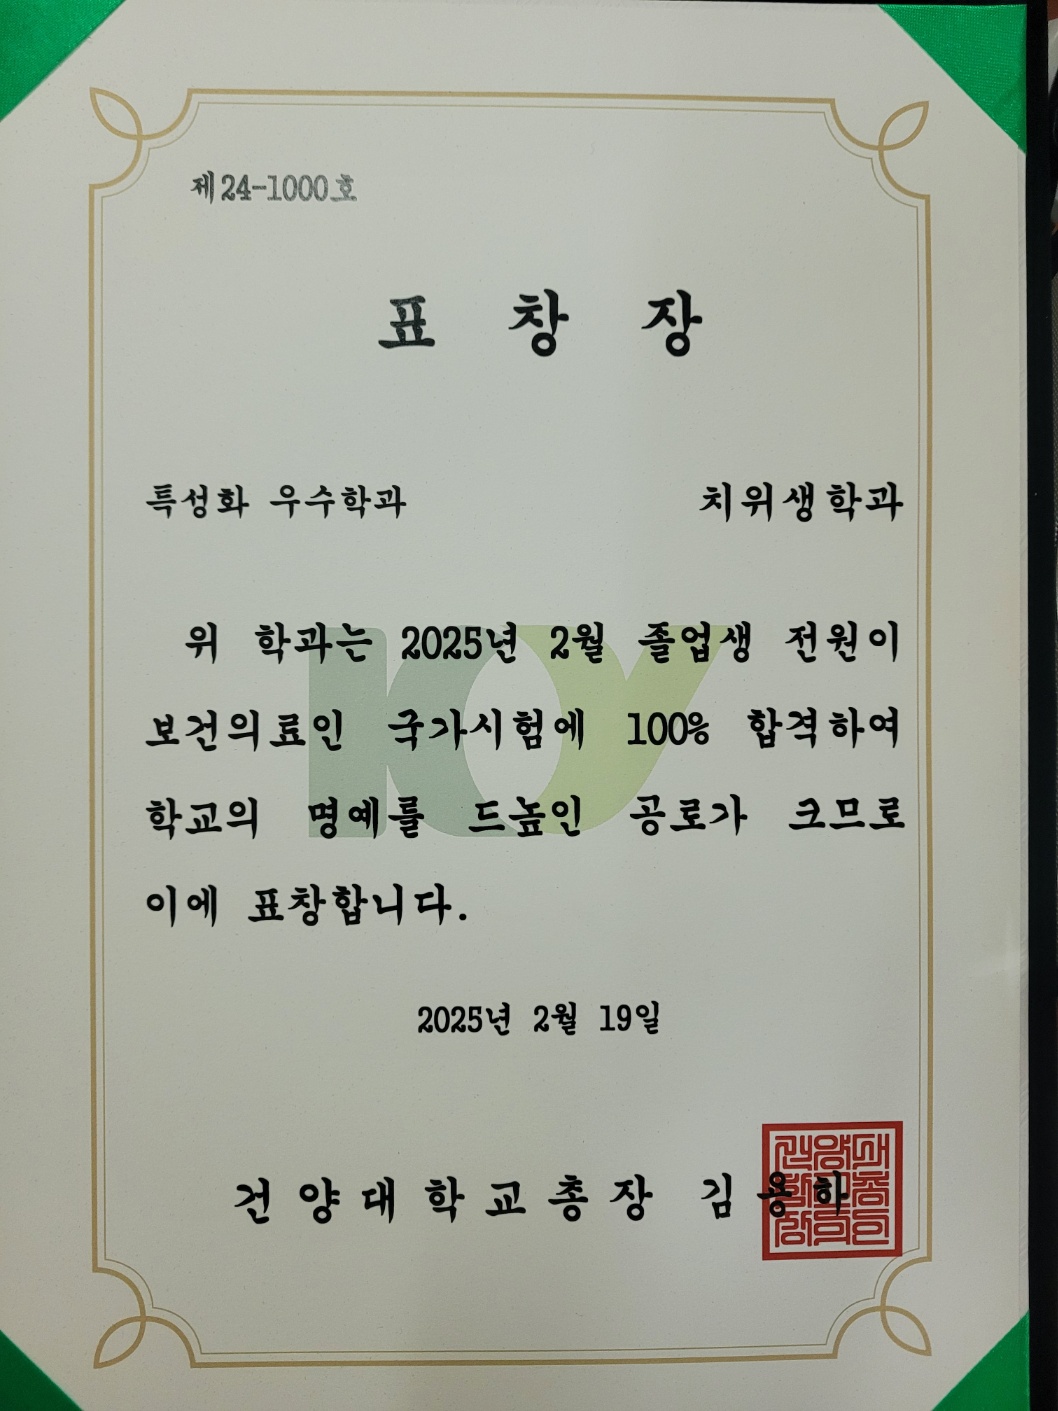 제24-1000호
표 창 장
특성화 우수학과 치위생학과
위 학과는 2025년 2월 졸업생 전원이
보건의료인 국가시험에 100% 합격하여
학교의 명예를 드높인 공로가 크므로
이에 표창합니다.
2025년 2월 19일
건양대학교총장 김용하